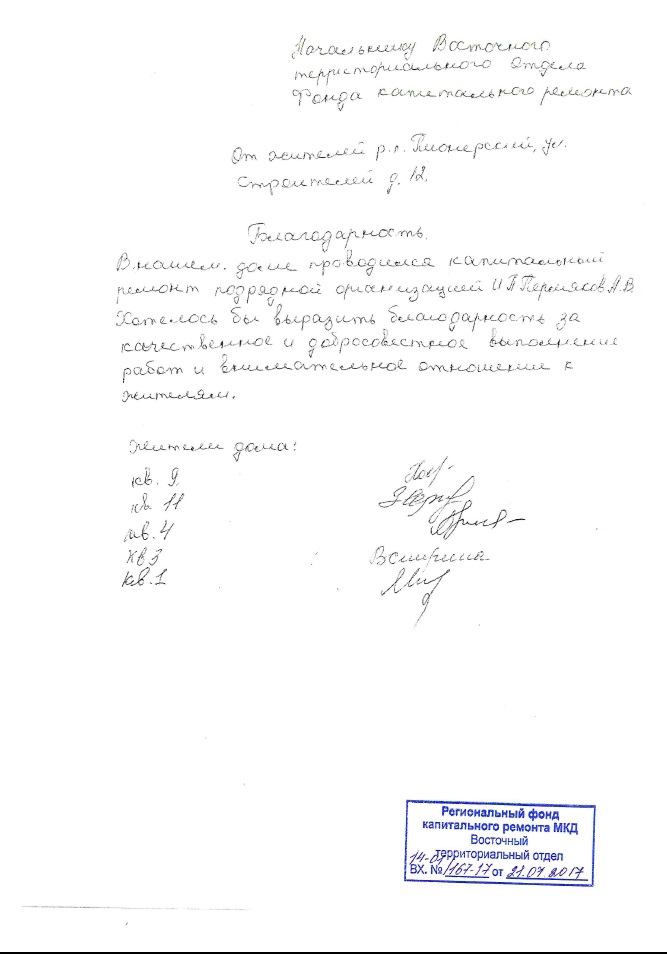 Начальнику Восточного
территориального отдела
Фонда капитального ремонта
От жителей р.п. Пионерский, ул.
Строителей д. 12.
Благодарность.
В нашем доме проводился капитальный
ремонт подрядной организацией ИП Пермяков А.В.
Хотелось бы выразить благодарность за
качественное и добросовестное выполнение
работ и внимательное отношение к
жителям.
Жители дома:
кв. 9
кв 11
кв. 4
кв 3
кв. 1
Региональный фонд
капитального ремонта МКД
Восточный
территориальный отдел
ВХ. № /167-17 от 21.07.2017